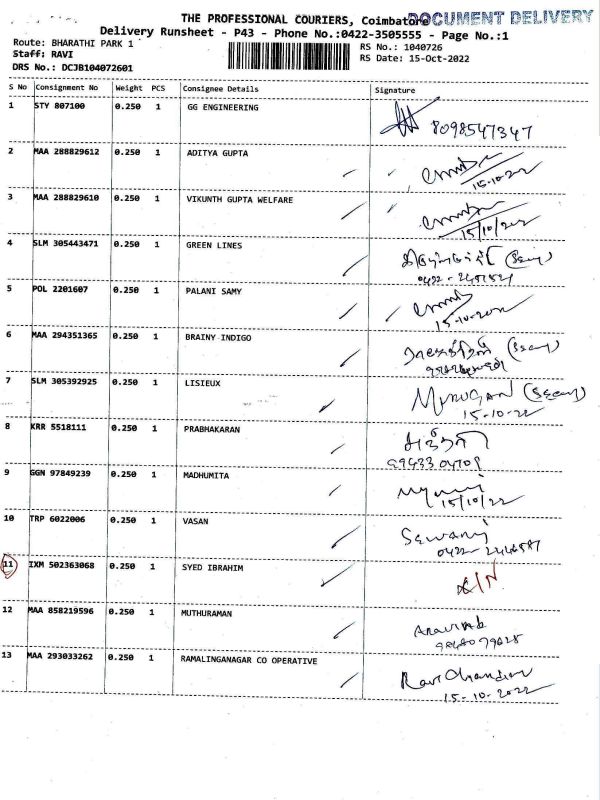 THE PROFESSIONAL COURIERS, Coimbatore DOCUMENT DELIVERY
Delivery Runsheet - P43 - Phone No.:0422-3505555 - Page No.:1
Route: BHARATHI PARK 1 RS No.: 1040726
Staff: RAVI RS Date: 15-Oct-2022
DRS No.: DCJB104072601
S No Consignment No Weight PCS Consignee Details Signature
1 STY 807100 0.250 1 GG ENGINEERING
8098547347
2 MAA 288829612 0.250 1 ADITYA GUPTA
15-10-22
3 MAA 288829610 0.250 1 VIKUNTH GUPTA WELFARE
15/10/22
4 SLM 305443471 0.250 1 GREEN LINES
5 POL 2201607 0.250 1 PALANI SAMY
15-10-22
6 MAA 294351365 0.250 1 BRAINY INDIGO
7 SLM 305392925 0.250 1 LISIEUX MURUGAN
15-10-22
8 KRR 5518111 0.250 1 PRABHAKARAN
9 GGN 97849239 0.250 1 MADHUMITA
15/10/22
10 TRP 6022006 0.250 1 VASAN
11 IXM 502363068 0.250 1 SYED IBRAHIM
12 MAA 858219596 0.250 1 MUTHURAMAN
13 MAA 293033262 0.250 1 RAMALINGANAGAR CO OPERATIVE
15-10-2022